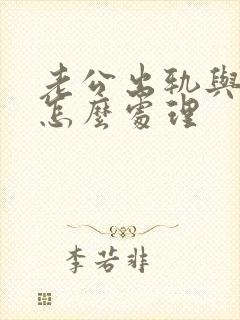 老公出轨與
怎麼處理
李若非